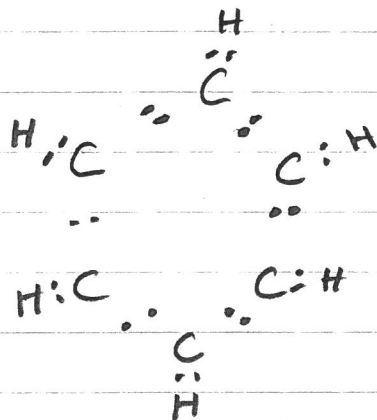 H
C
H C C H
H C C H
C
H